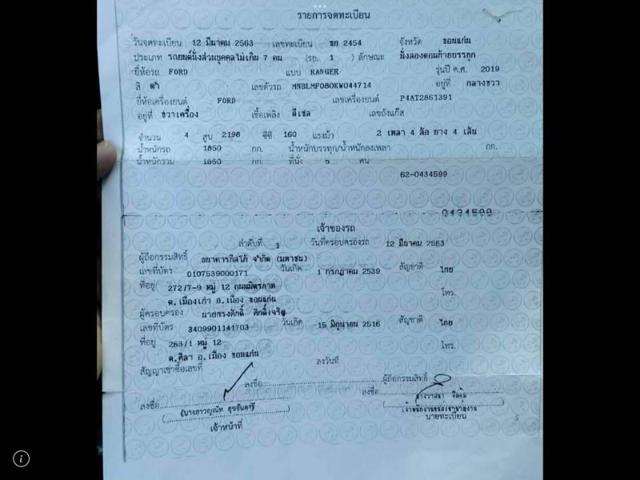 รายการจดทะเบียน
วันจดทะเบียน 12 มีนาคม 2563 เลขทะเบียน ขย 2454 จังหวัด ขอนแก่น
ประเภท รถยนต์นั่งส่วนบุคคลไม่เกิน 7 คน (รย. 1 ) ลักษณะ นั่งสองตอนท้ายบรรทุก
ยี่ห้อรถ FORD แบบ RANGER รุ่นปี ค.ศ. 2019
สี ดำ เลขตัวรถ MNBLMF080KW044714 อยู่ที่ กลางขวา
ยี่ห้อเครื่องยนต์ FORD เลขเครื่องยนต์ P4AT2861391
อยู่ที่ ขวาเครื่อง เชื้อเพลิง ดีเซล เลขถังแก๊ส
จำนวน 4 สูบ 2198 ซีซี 160 แรงม้า 2 เพลา 4 ล้อ ยาง 4 เส้น
น้ำหนักรถ 1850 กก. น้ำหนักบรรทุก/น้ำหนักลงเพลา กก.
น้ำหนักรวม 1850 กก. ที่นั่ง 5 คน
62-0434599
0434599
เจ้าของรถ
ลำดับที่ 1 วันที่ครอบครองรถ 12 มีนาคม 2563
ผู้ถือกรรมสิทธิ์ ธนาคารทิสโก้ จำกัด (มหาชน)
เลขที่บัตร 0107539000171 วันเกิด 1 กรกฎาคม 2539 สัญชาติ ไทย
ที่อยู่ 272/7-9 หมู่ 12 ถนนมิตรภาพ
ต.เมืองเก่า อ.เมือง ขอนแก่น โทร.
ผู้ครอบครอง นายทรงศักดิ์
เลขที่บัตร 3409901141703 วันเกิด 15 มิถุนายน 2516 สัญชาติ ไทย
ที่อยู่ 283/1 หมู่ 12
ต.ศิลา อ.เมือง ขอนแก่น โทร.
สัญญาเช่าซื้อเลขที่ ลงวันที่
ลงชื่อ ผู้ถือกรรมสิทธิ์
ลงชื่อ ลงชื่อ
เจ้าหน้าที่ นายทะเบียน